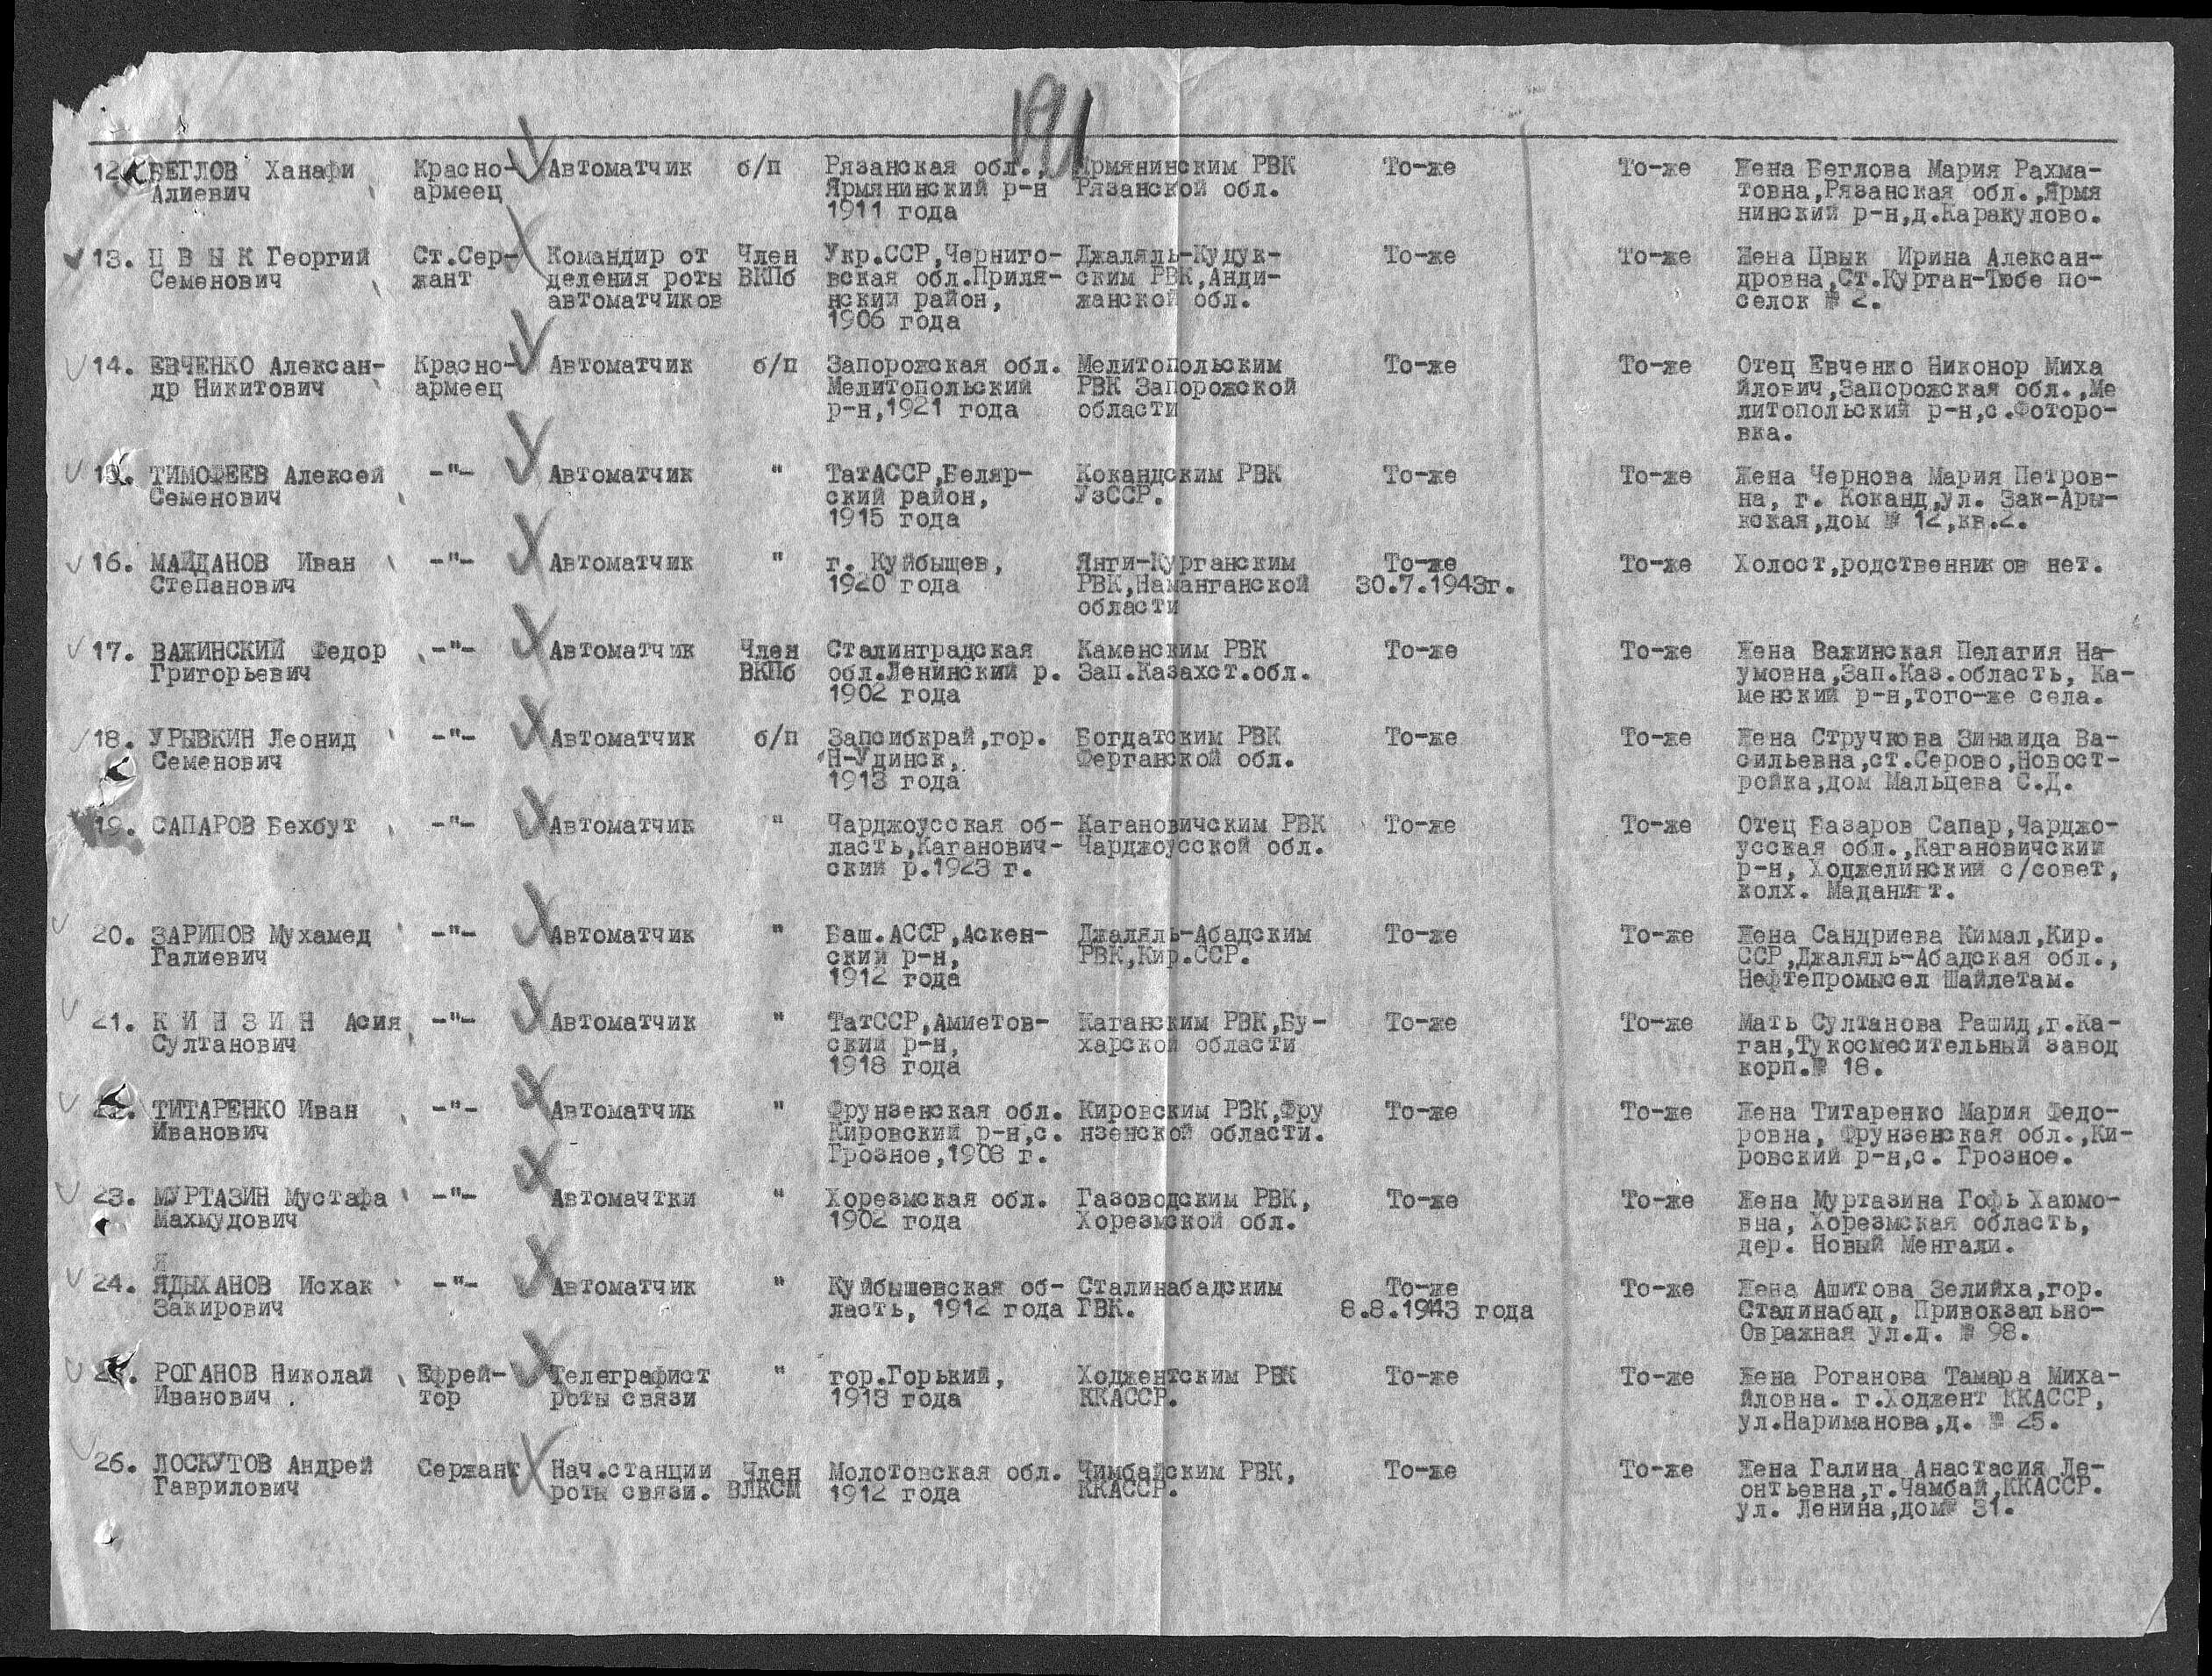 191
12. БЕГЛОВ Ханафи Красно- Автоматчик б/п Рязанская обл., Ярмянинским РВК То-же То-же Жена Беглова Мария Рахма-
Алиевич армеец Ярмянинский р-н Рязанской обл. товна,Рязанская обл.,Ярмя
1911 года нинский р-н,д.Каракулово.
13. Ц В Ы К Георгий Ст.Сер- Командир от Член Укр.ССР,Черниго- Джаляль-Кудук- То-же То-же Жена Цвык Ирина Алексан-
Семенович жант деления роты ВКПб вская обл.Приля- ским РВК,Анди- дровна,Ст.Курган-Тюбе по-
автоматчиков нский район, жанской обл. селок № 2.
1906 года
14. ЕВЧЕНКО Алексан- Красно- Автоматчик б/п Запорожская обл. Мелитопольским То-же То-же Отец Евченко Никонор Миха
др Никитович армеец Мелитопольский РВК Запорожской йлович,Запорожская обл.,Ме
р-н,1921 года области литопольский р-н,с.Фоторо-
вка.
15. ТИМОФЕЕВ Алексей -"- Автоматчик " ТатАССР,Беляр- Кокандским РВК То-же То-же Жена Чернова Мария Петров-
Семенович ский район, УзССР. на, г. Коканд,ул. Зак-Ары-
1915 года кская,дом № 12,кв.2.
16. МАЙДАНОВ Иван -"- Автоматчик " г. Куйбышев, Янги-Курганским То-же То-же Холост,родственников нет.
Степанович 1920 года РВК,Наманганской 30.7.1943г.
области
17. ВАЖИНСКИЙ Федор -"- Автоматчик Член Сталинградская Каменским РВК То-же То-же Жена Важинская Пелагия На-
Григорьевич ВКПб обл.Ленинский р. Зап.Казахст.обл. умовна,Зап.Каз.область, Ка-
1902 года менский р-н,того-же села.
18. УРЫВКИН Леонид -"- Автоматчик б/п Запсибкрай,гор. Богдатским РВК То-же То-же Жена Стручкова Зинаида Ва-
Семенович Н-Удинск, Ферганской обл. сильевна,ст.Серово,Новост-
1913 года ройка,дом Мальцева С.Д.
19. САПАРОВ Бехбут -"- Автоматчик " Чарджоусская об- Кагановичским РВК То-же То-же Отец Базаров Сапар,Чарджо-
ласть,Каганович- Чарджоусской обл. усская обл.,Кагановичский
ский р.1923 г. р-н, Ходжелинский с/совет,
колх. Маданият.
20. ЗАРИПОВ Мухамед -"- Автоматчик " Баш.АССР,Аскен- Джаляль-Абадским То-же То-же Жена Сандриева Кимал,Кир.
Галиевич ский р-н, РВК,Кир.ССР. ССР,Джаляль-Абадская обл.,
1912 года Нефтепромысел Шайлетам.
21. К И Н З И Н Асия -"- Автоматчик " ТатССР,Амиетов- Каганским РВК,Бу- То-же То-же Мать Султанова Рашид,г.Ка-
Султанович ский р-н, харской области ган,Тукосмесительный завод
1918 года корп.№ 18.
22. ТИТАРЕНКО Иван -"- Автоматчик " Фрунзенская обл. Кировским РВК,Фру То-же То-же Жена Титаренко Мария Федо-
Иванович Кировский р-н,с. нзенской области. ровна, Фрунзенская обл.,Ки-
Грозное,1908 г. ровский р-н,с. Грозное.
23. МУРТАЗИН Мустафа -"- Автомачтки " Хорезмская обл. Газоводским РВК, То-же То-же Жена Муртазина Гофь Хаюмо-
Махмудович 1902 года Хорезмской обл. вна, Хорезмская область,
дер. Новый Менгали.
Я
24. ЯДЫХАНОВ Исхак -"- Автоматчик " Куйбышевская об- Сталинабадским То-же То-же Жена Ашитова Зелийха,гор.
Закирович ласть, 1912 года ГВК. 8.8.1943 года Сталинабад, Привокзально-
Овражная ул.д. № 98.
25. РОГАНОВ Николай Ефрей- Телеграфист " гор.Горький, Ходжентским РВК То-же То-же Жена Роганова Тамара Миха-
Иванович . тор роты связи 1913 года ККАССР. йловна. г.Ходжент ККАССР,
ул.Нариманова,д. № 25.
26. ЛОСКУТОВ Андрей Сержант Нач.станции Член Молотовская обл. Чимбайским РВК, То-же То-же Жена Галина Анастасия Ле-
Гаврилович роты связи. ВЛКСМ 1912 года ККАССР. онтьевна,г.Чамбай,ККАССР.
ул. Ленина,дом№ 31.